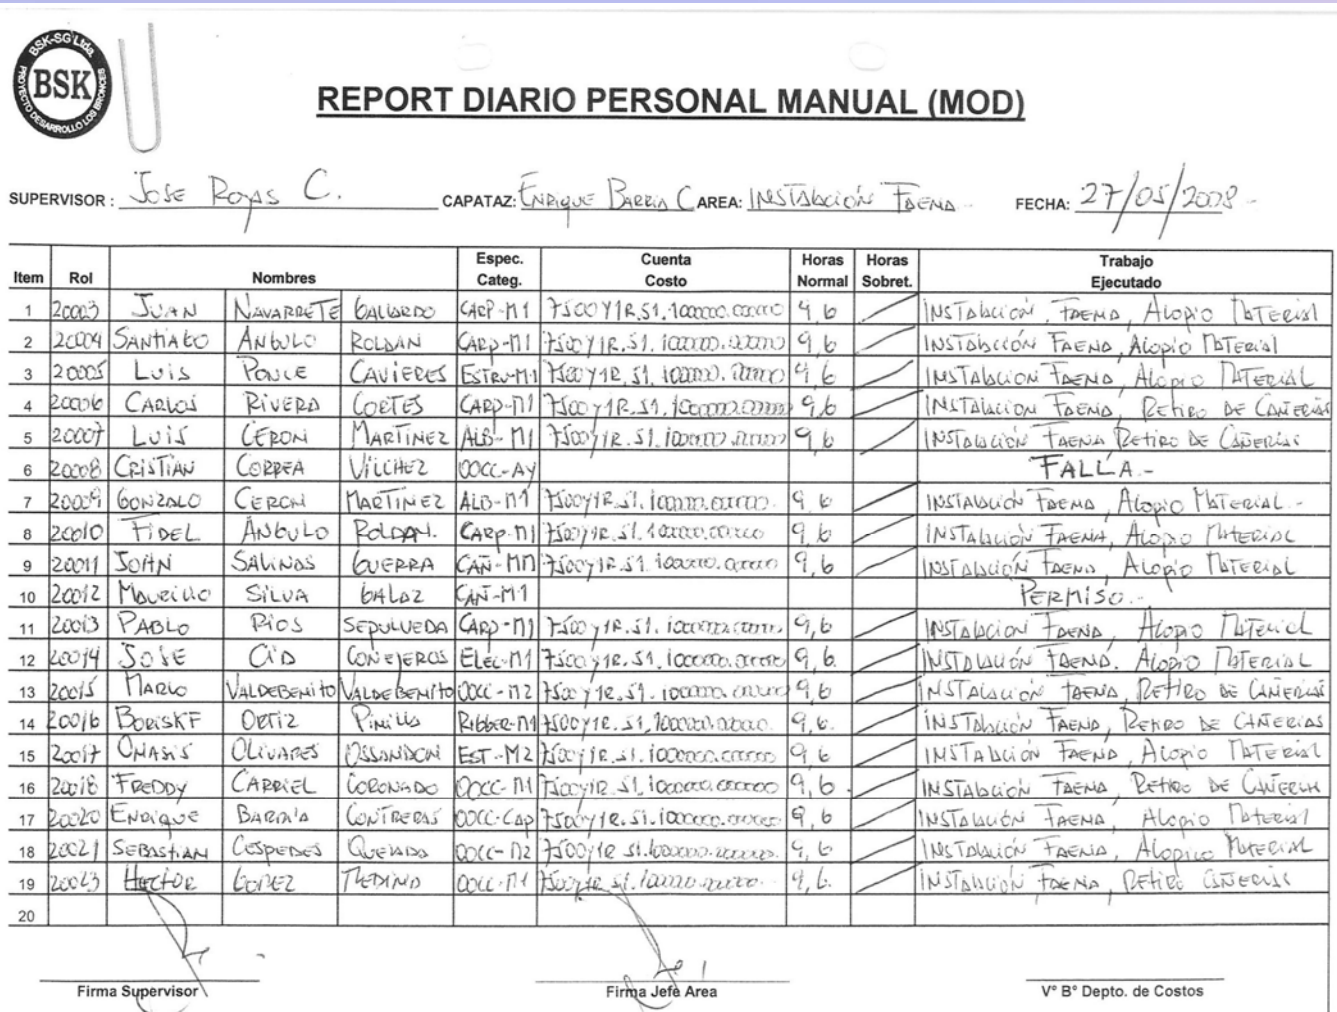 BSK-SG Ltda.
BSK
PROYECTO DESARROLLO LOS BRONCES
REPORT DIARIO PERSONAL MANUAL (MOD)
SUPERVISOR : Jose Rojas C. CAPATAZ: Enrique Barria C AREA: Instalación Faena FECHA: 27/05/2008.-
Item Rol Nombres Espec. Categ. Cuenta Costo Horas Normal Horas Sobret. Trabajo Ejecutado
1 20003 Juan Navarrete Gallardo Carp-M1 7500Y1R.S1.100000.00000 9,6 Instalación, Faena, Acopio Material
2 20004 Santiago Angulo Roldán Carp-M1 7500Y1R.S1.100000.00000 9,6 Instalación Faena, Acopio Material
3 20005 Luis Ponce Cavieres Estru-M1 7500Y1R.S1.100000.00000 9,6 Instalacion Faena, Acopio Material
4 20006 Carlos Rivera Cortes Carp-M1 7500Y1R.S1.100000.00000 9,6 Instalacion Faena, Retiro de Cañerias
5 20007 Luis Ceron Martinez Alb-M1 7500Y1R.S1.100000.00000 9,6 Instalación Faena Retiro de Cañerias
6 20008 Cristian Correa Vilchez OOCC-AY FALLA.-
7 20009 Gonzalo Ceron Martinez Alb-M1 7500Y1R.S1.100000.00000. 9,6 Instalación Faena, Acopio Material.-
8 20010 Fidel Angulo Roldan. Carp-M1 7500Y1R.S1.100000.00000 9,6 Instalación Faena, Acopio Material
9 20011 John Salinas Guerra Cañ-M1 7500Y1R.S1.100000.00000 9,6 Instalación Faena, Acopio Material
10 20012 Mauricio Silva Galaz Cañ-M1 PERMISO.-
11 20013 Pablo Rios Sepulveda Carp-M1 7500Y1R.S1.100000.00000 9,6 Instalacion Faena, Acopio Material
12 20014 Jose Cid Conejeros Elec-M1 7500Y1R.S1.100000.00000 9,6. Instalación Faena. Acopio Material
13 20015 Mario Valdebenito Valdebenito OOCC-M2 7500Y1R.S1.100000.00000 9,6 Instalación Faena, Retiro de Cañerias
14 20016 Ortiz Pinilla 7500Y1R.S1.100000.00000. 9,6. Instalación Faena, Retiro de Cañerias
15 20017 Onasis Olivares Ossandon Est-M2 7500Y1R.S1.100000.00000 9,6 Instalación Faena, Acopio Material
16 20018 Freddy Carriel Coronado OOCC-M1 7500Y1R.S1.100000.00000 9,6. Instalación Faena, Retiro de Cañeria
17 20020 Enrique Barria Contreras OOCC-Cap 7500Y1R.S1.100000.00000 9,6 Instalación Faena, Acopio Material
18 20021 Sebastian Cespedes Quezada OOCC-M2 7500Y1R.S1.100000.00000. 9,6 Instalación Faena, Acopio Material
19 20023 Hector Gomez Medina OOCC-M1 7500Y1R.S1.100000.00000. 9,6. Instalación Faena, Retiro Cañerias
20
Firma Supervisor Firma Jefe Area V° B° Depto. de Costos